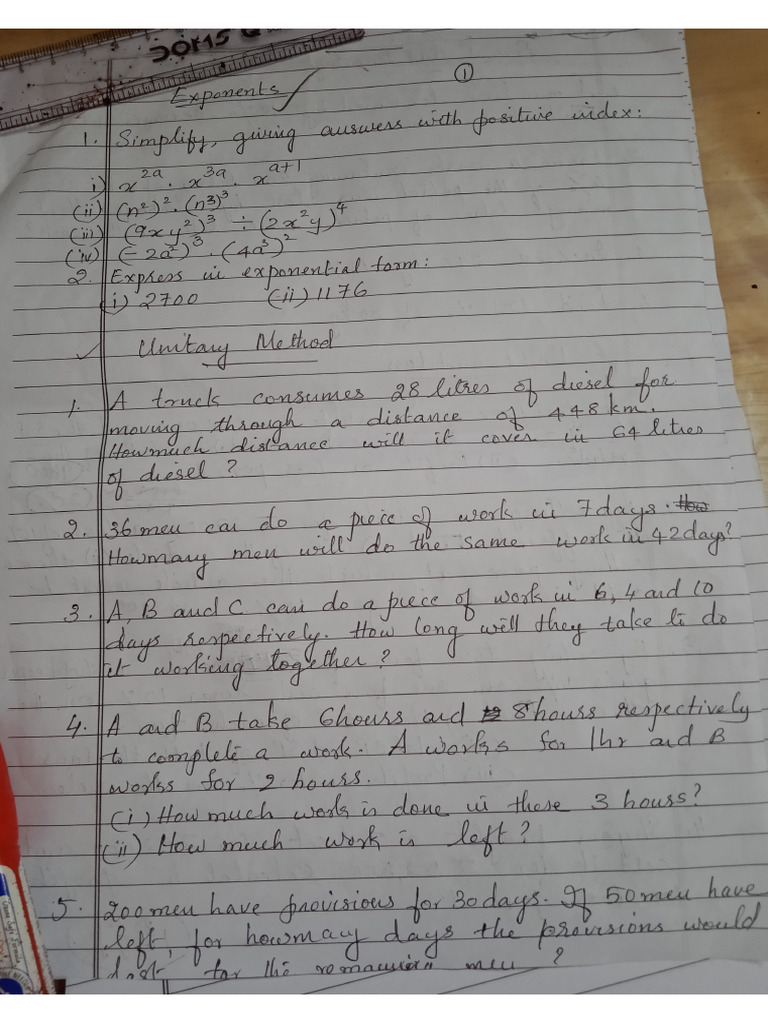 DOMS
①
Exponents
1. Simplify, giving answers with positive index:
i) x^2a . x^3a . x^a+1
(ii) (n²)² . (n³)³
(iii) (9xy²)³ ÷ (2x²y)⁴
(iv) (-2a²)³ . (4a³)²
2. Express in exponential form:
(i) 2700 (ii) 1176
Unitary Method
1. A truck consumes 28 litres of diesel for
moving through a distance of 448 km.
Howmuch distance will it cover in 64 litres
of diesel ?
2. 36 men can do a piece of work in 7 days.
Howmany men will do the same work in 42 days?
3. A, B and C can do a piece of work in 6, 4 and 10
days respectively. How long will they take to do
it working together ?
4. A and B take 6 hours and 8 hours respectively
to complete a work. A works for 1 hr and B
works for 2 hours.
(i) How much work is done in these 3 hours?
(ii) How much work is left ?
5. 200 men have provisions for 30 days. If 50 men have
left, for howmay days the provisions would
last for the remaining men ?